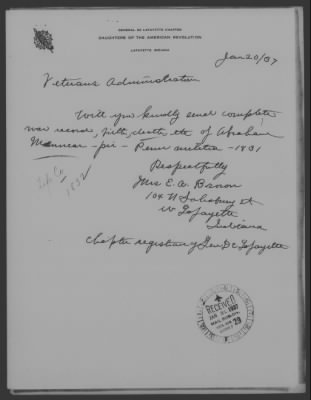 GENERAL DE LAFAYETTE CHAPTER
DAUGHTERS OF THE AMERICAN REVOLUTION
LAFAYETTE, INDIANA
Jan 20/37
Veterans Administration
Will you kindly send complete
war record, birth, death, etc of Abraham
- pri - Penn militia - 1831
Respectfully
Mrs E. A. Brown
104 N Salisbury St
W Lafayette
Indiana
Chapter registrar Gen D C Lafayette
1832
RECEIVED
1937
29